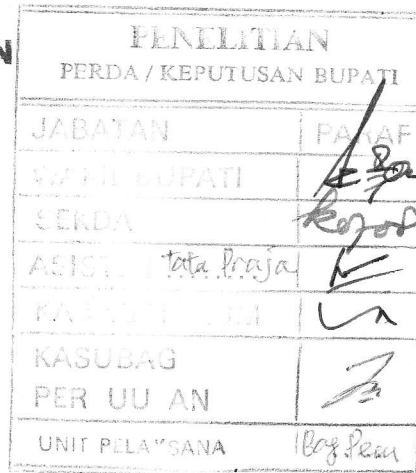 N
PENELITIAN
PERDA / KEPUTUSAN BUPATI
JABATAN PARAF
UPATI
SEKDA
ASIST tata Praja
KASUBAG
PER UU AN
UNIT PELAKSANA Bag. Pem